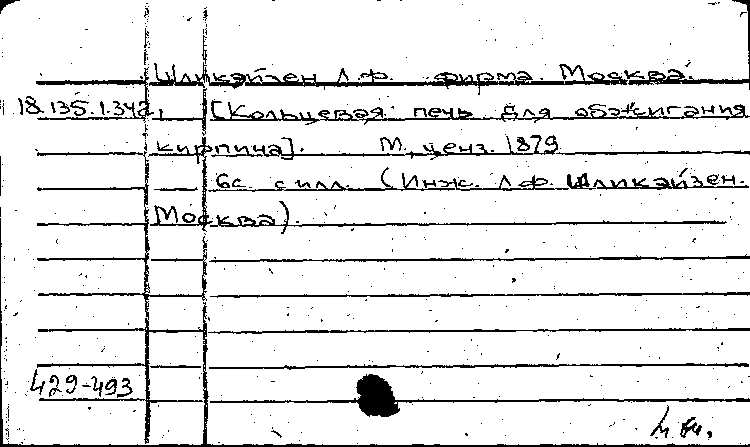 Шликэйзен, Л.Ф. фирма. Москва.
18.135.1.342, [Кольцевая печь для обжигания
кирпича]. М., ценз. 1879
6с. с илл. (Инж. Л.Ф. Шликэйзен.
Москва).
429-493